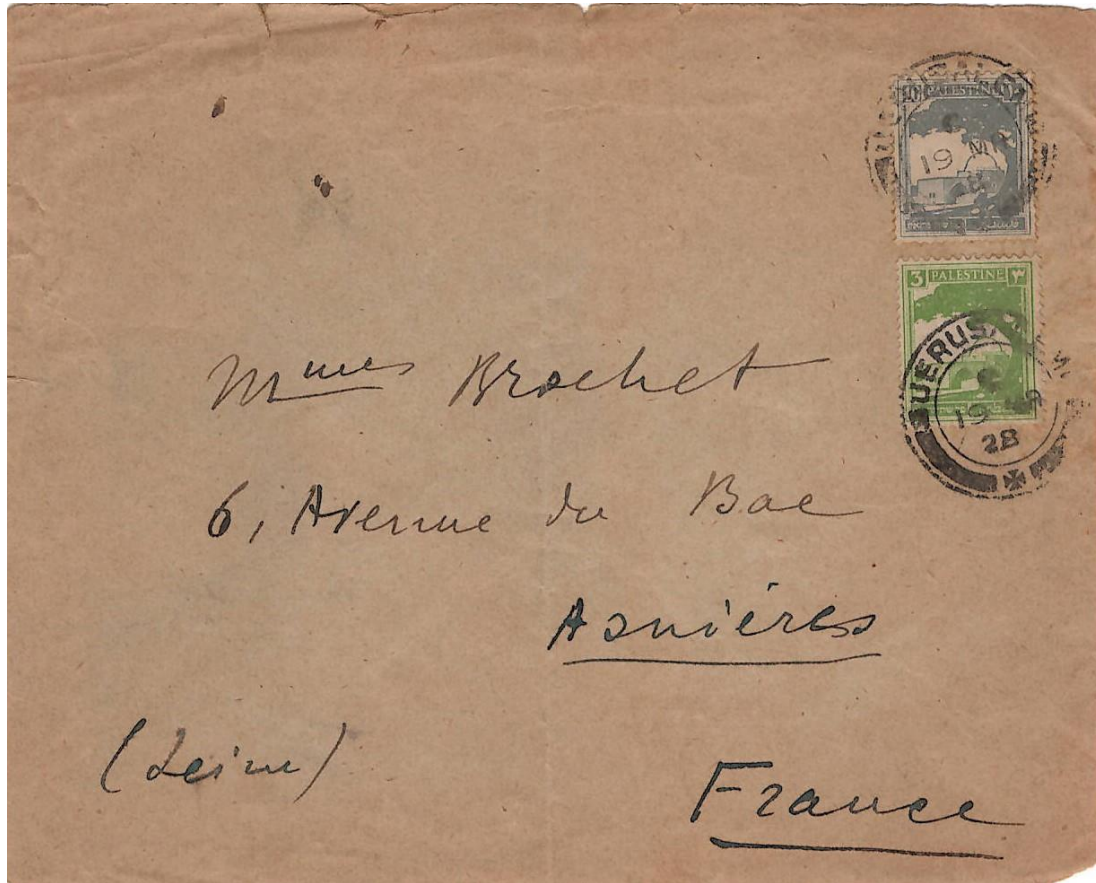 10 PALESTINE
19 MR
3 PALESTINE ٣
JERUSA
19
28
Mmes Brochet
6, Avenue du Bac
Asnières
(Seine)
France